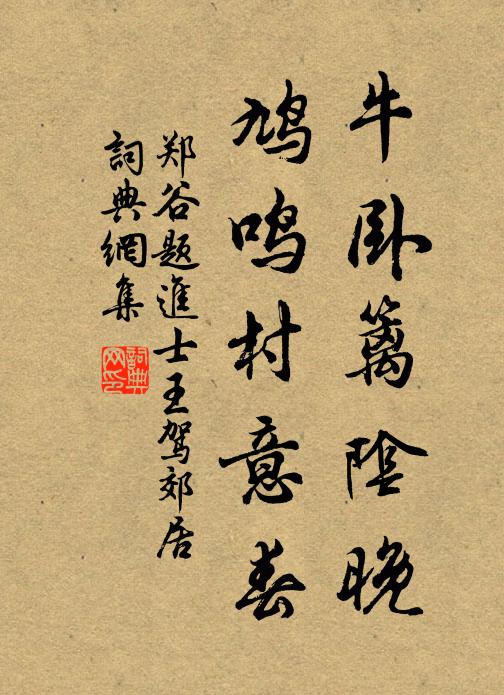 牛卧篱陰晚
鸠鸣村意春
郑谷题進士王驾郊居
詞典網集
詞典网印